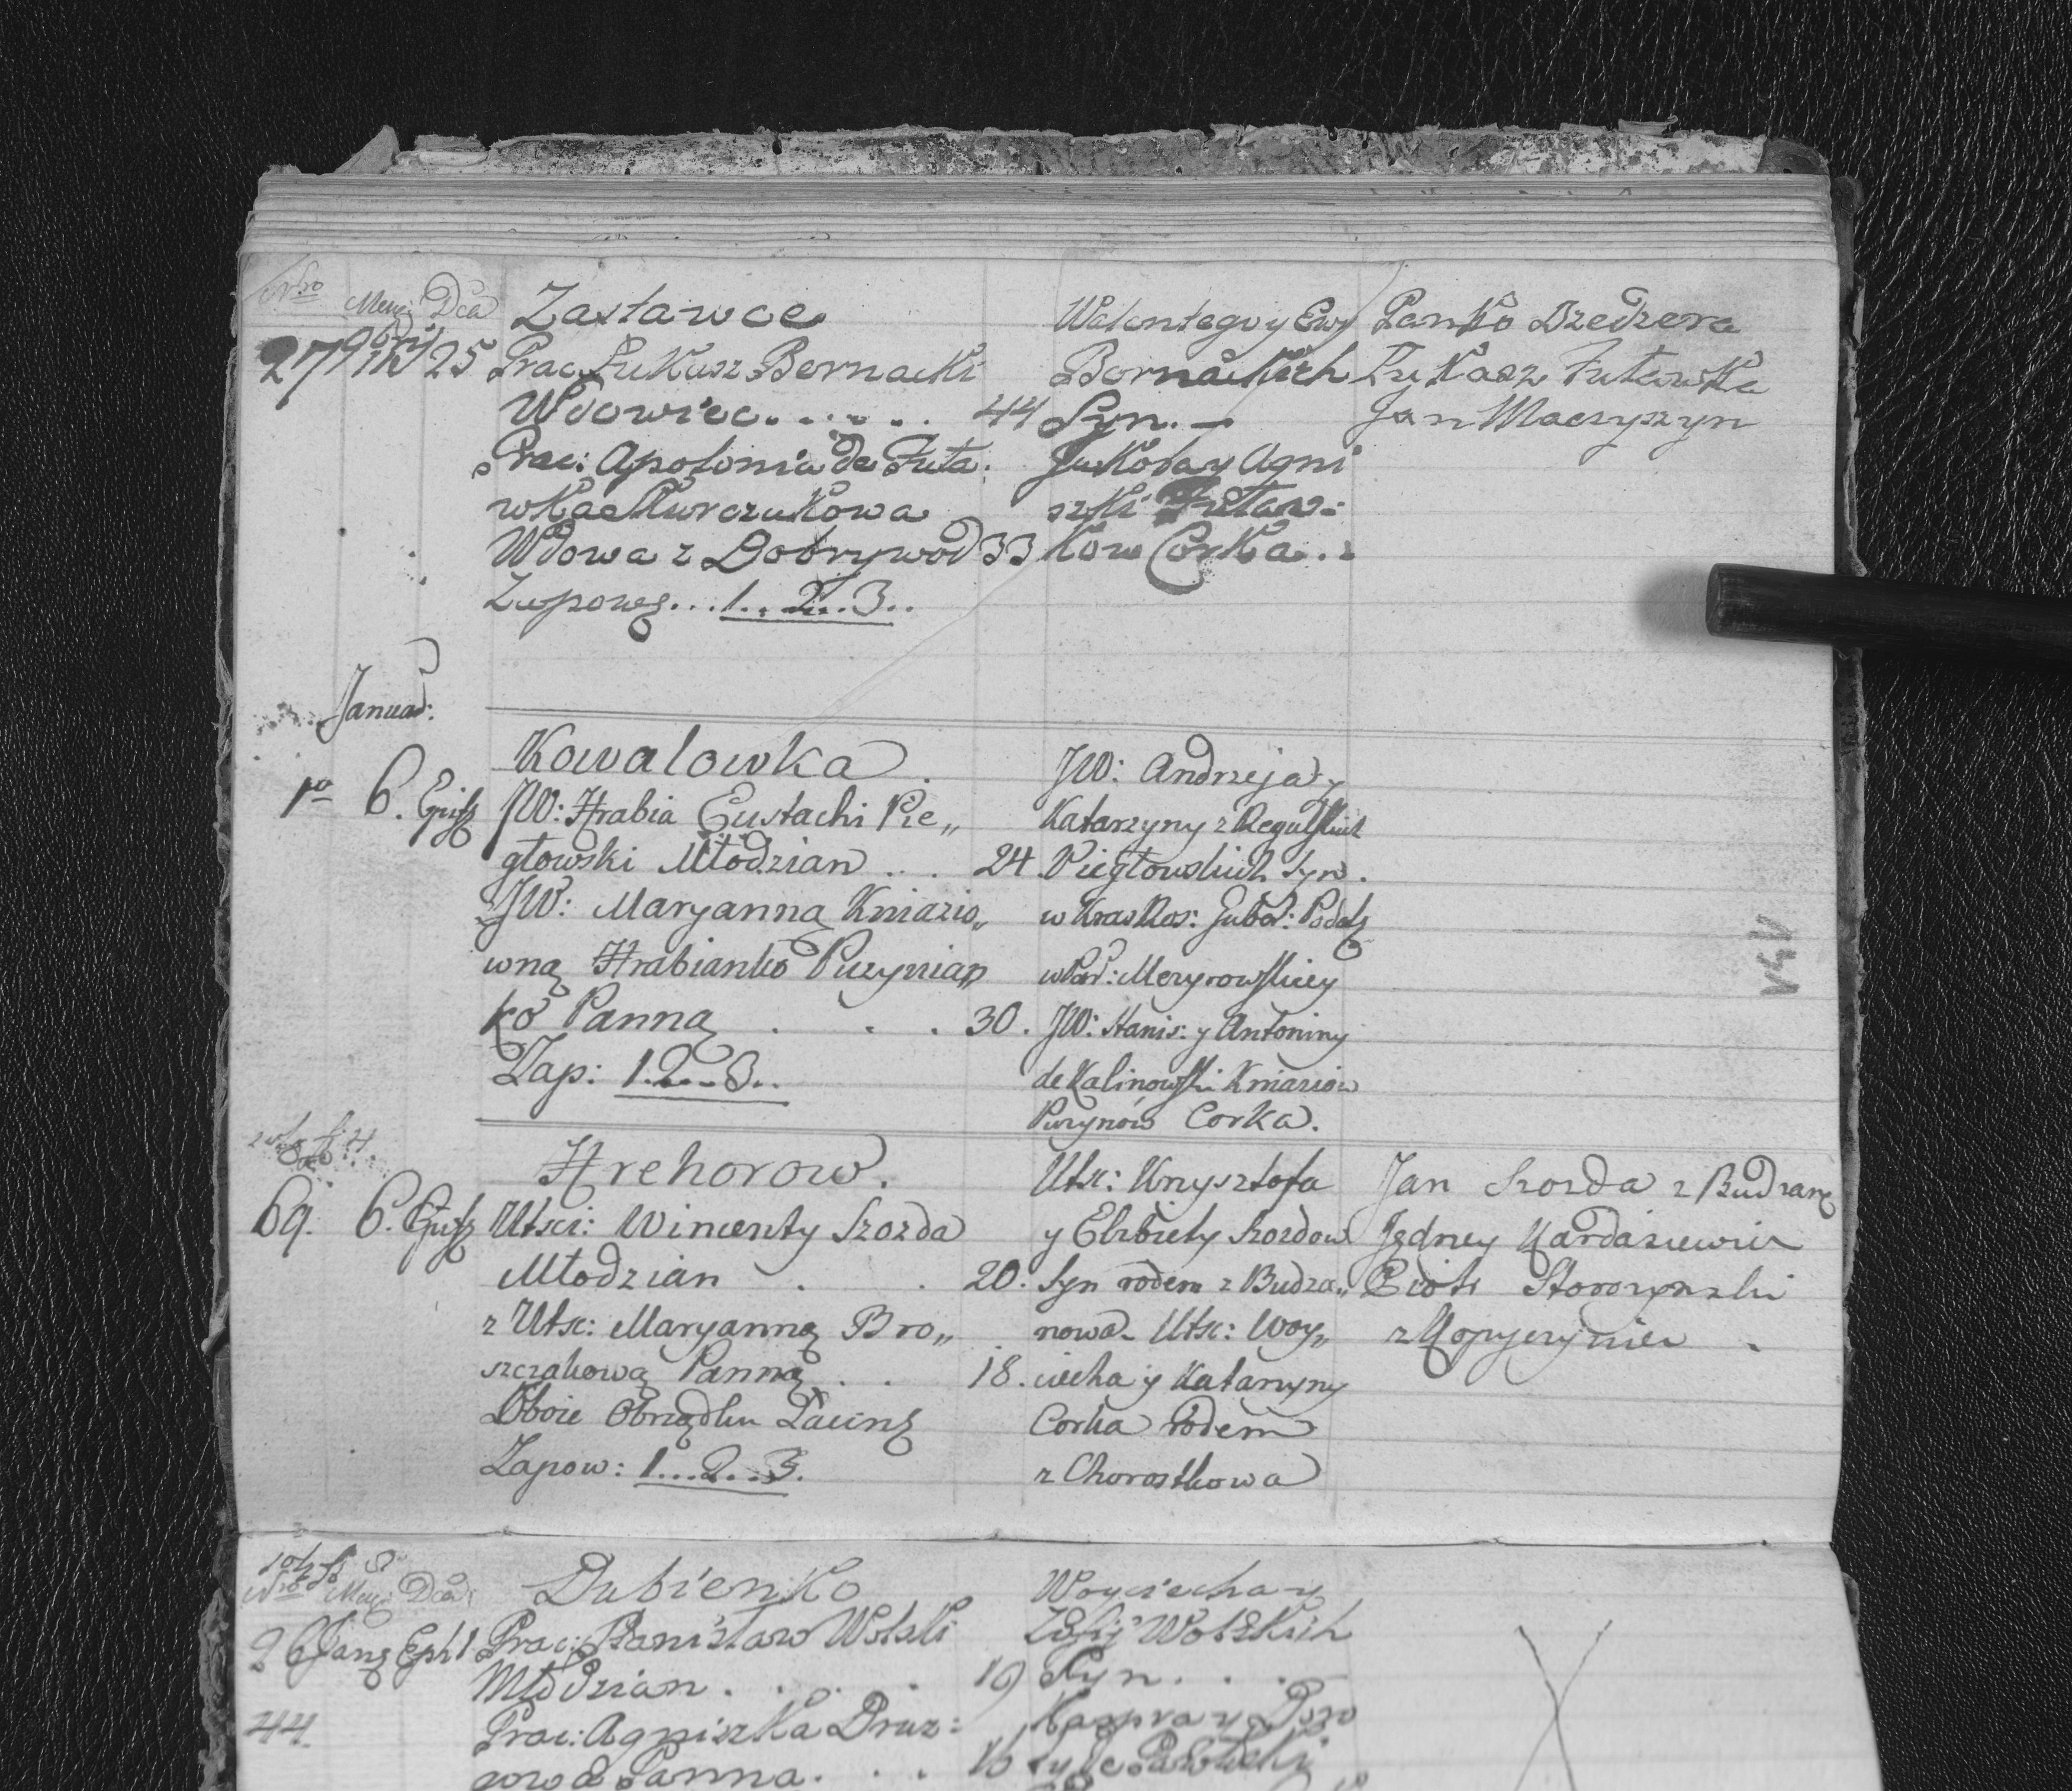 Nro Mens: Dca Zastawce
27 9bris 25 Prac: Łukasz Bernacki
Wdowiec 44
Prac: Apolonia de Futa:
wka Kurczukowa
Wdowa z Dobrywod 33
Zapowg... 1.. 2.. 3..
Walentego y Ewy
Bernackich
Syn. —
Jakoba y Agni
szki Futaw:
kow Corka..
Panko Dzedzera
Łukasz Futawka
Jan Maczyszyn
Januar:
Kowalowka.
1o 6. Epiph
JW: Hrabia Eustachi Pie„
głowski Młodzian . . . 24
JW: Maryanną Kniazio„
wną Hrabianko Puzynian„
ko Panną . . . 30.
Zap: 1..2...3..
JW: Andrzeja y
Katarzyny z Regulskich
Piegłowskich Syn.
w Kraw Ros: Guber: Podol
w Pow:
JW: Stanis: y Antoniny
de Kalinowski Kniaziow
Puzynów Corka.
VSV
Hrehorow.
69. 6. Epiph Utści: Wincenty Szozda
Młodzian . . 20.
z Utść: Maryanną Bro„
szczakową Panną . . 18.
Oboie Obrządku Łacinz
Zapow: 1...2...3.
Utść: Krzysztofa
y Elzbiety Szozdow
Syn rodem z Budza„
nowa - Utść: Woy„
ciecha y Katarzyny
Corka rodem
z Chorostkowa
Jan Szozda z Budzan
Jędrzey Kardasiewicz
Piotr Storozynski
z Kopyczyniec .
Nro Mens: Dca Dubienko
26 Jan Eph 1 Prac: Stanisław Wolski
Młodzian . . . . 19
44. Prac: Agniszka Druz:
gowa Panna . . . 16
Woyciecha y
Zofij Wolskich
Syn . . .
Kaspra y Doro
ty de Pawlicki